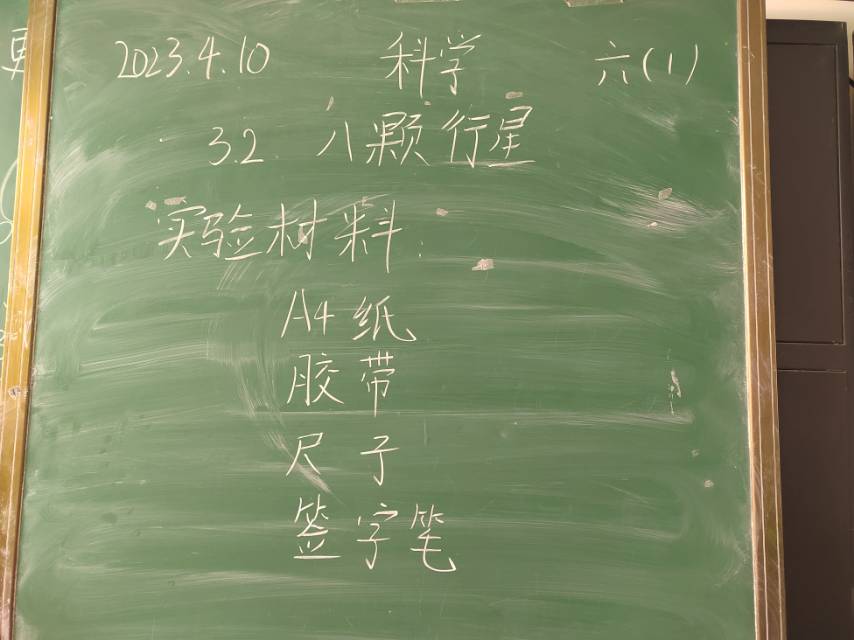 2023.4.10 科学 六(1)
3.2 八颗行星
实验材料:
A4纸
胶带
尺子
签字笔